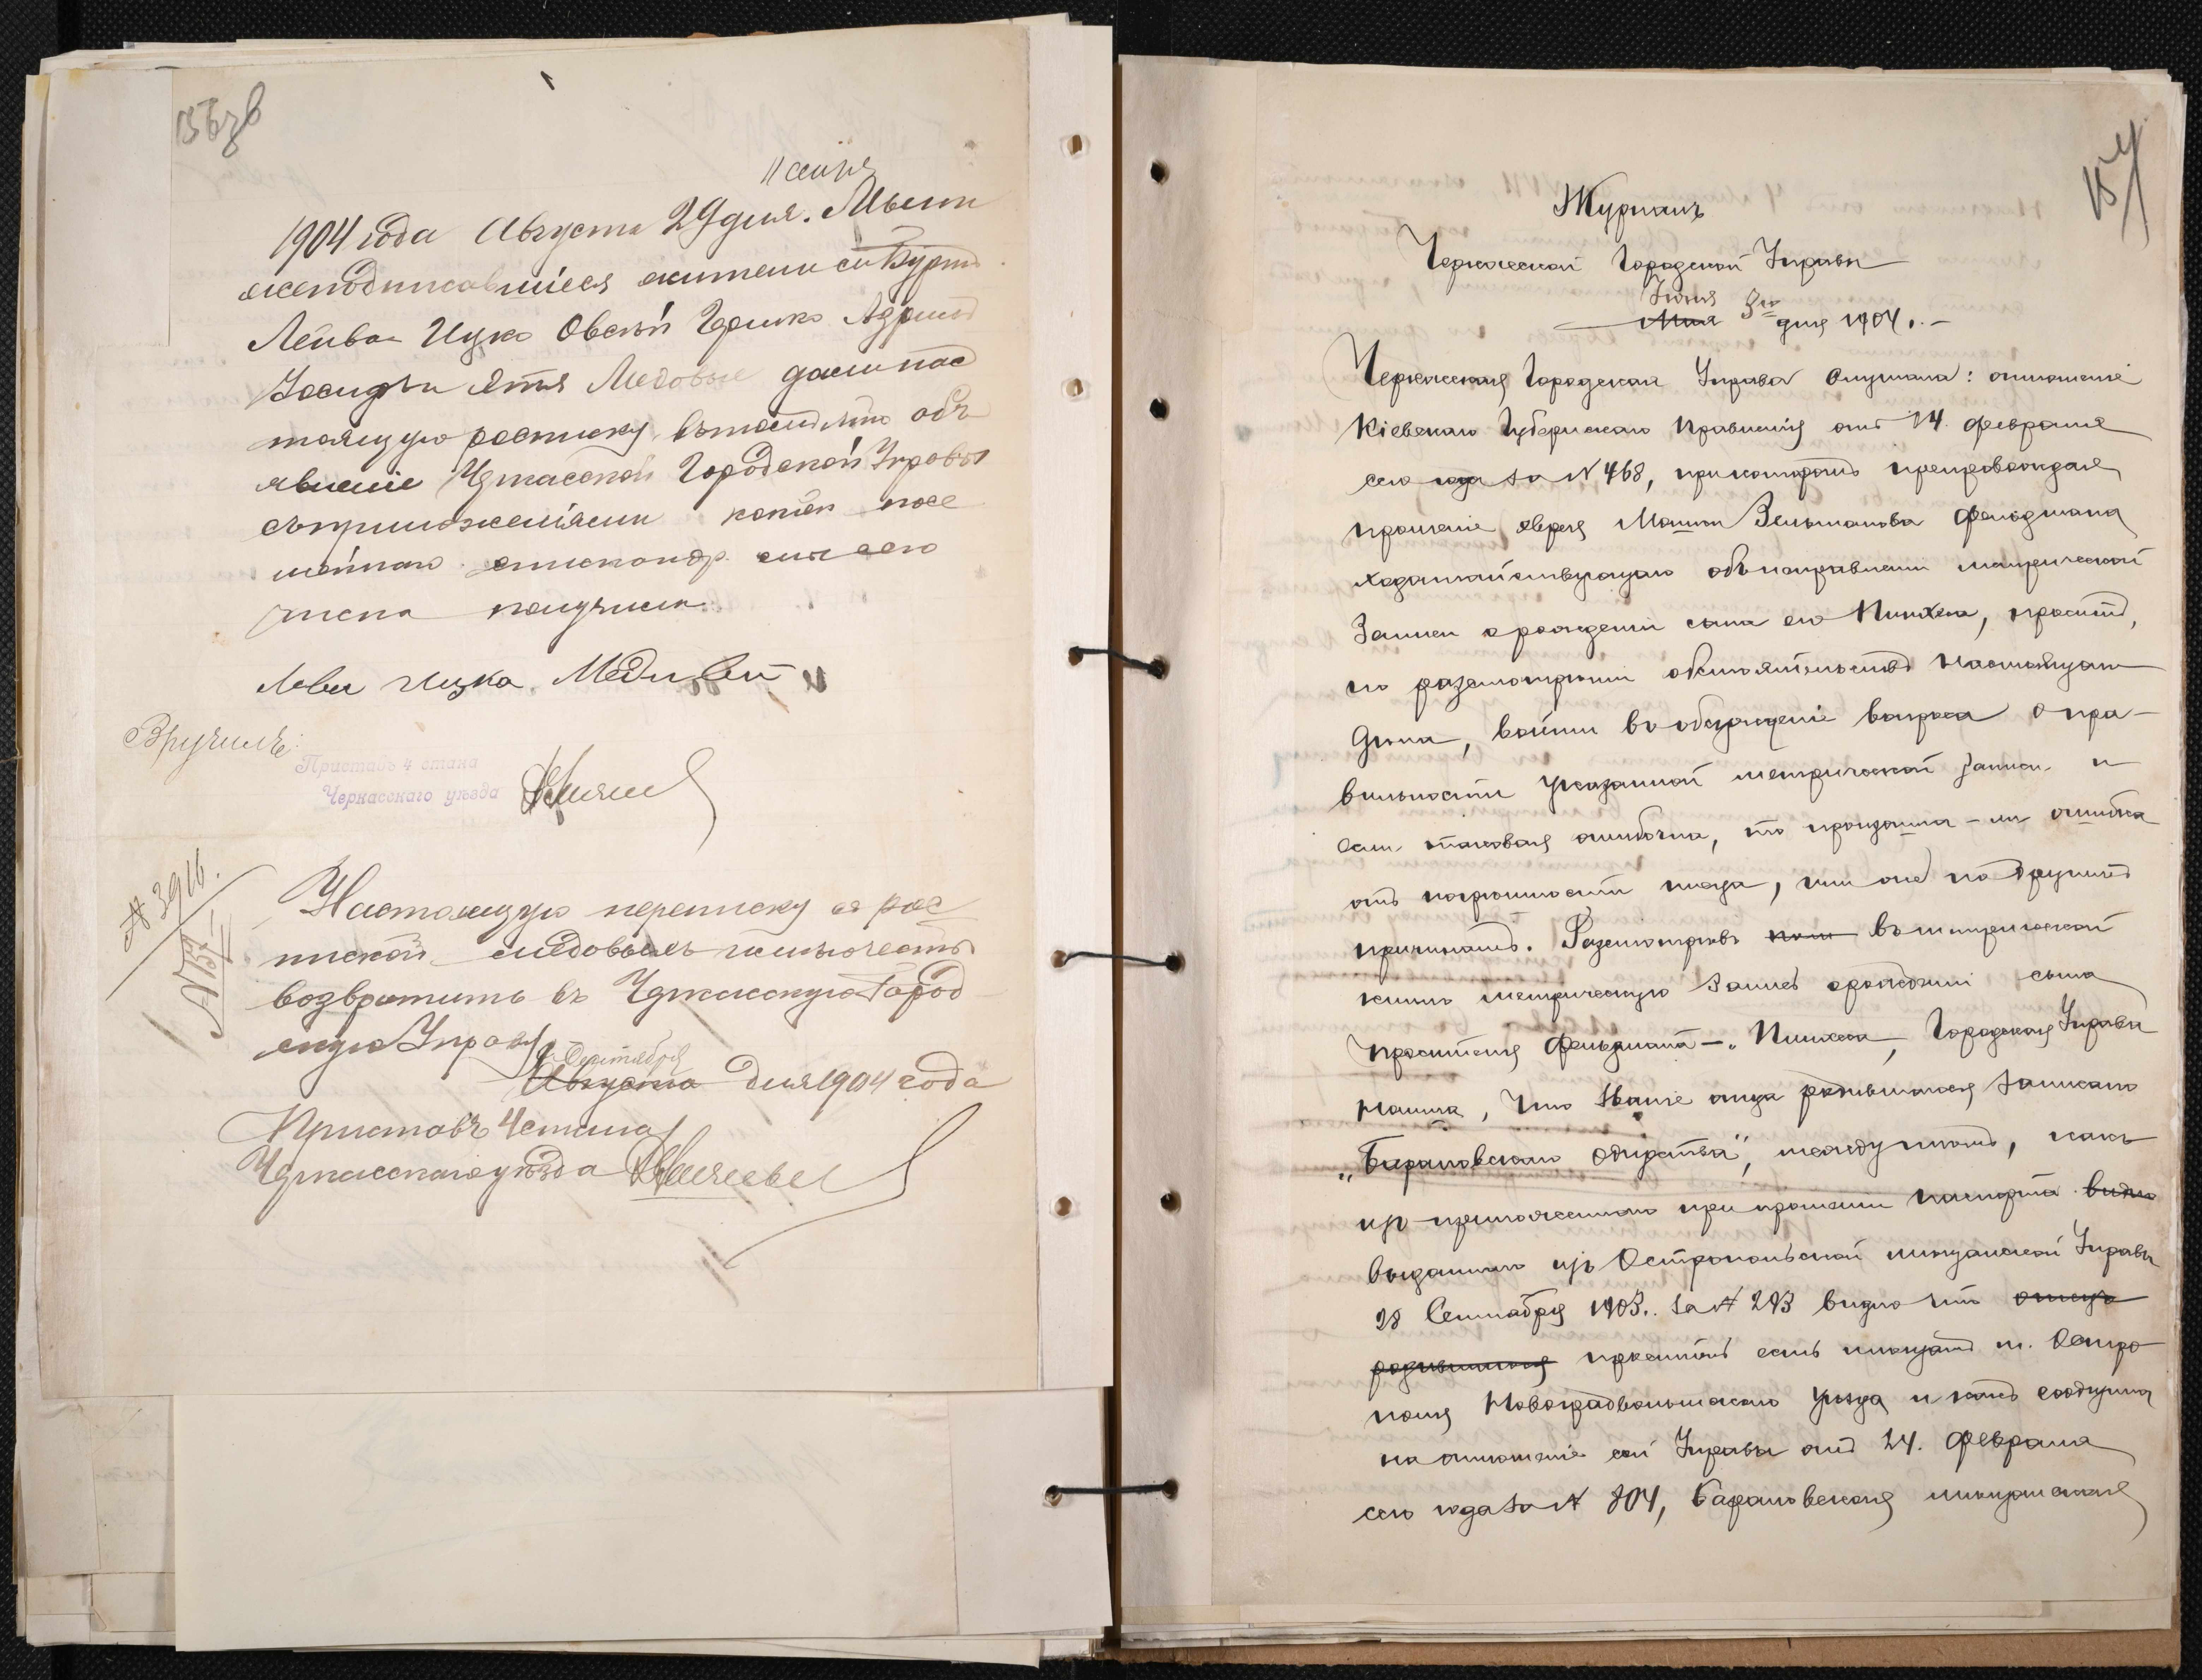 156 зв
11 сентя
1904 года Августа 29 дня. Мы ни
жеподписавшіеся жители с.
Лейба Ицко Овсей Гершко
Медовые дали нас
тоящую росписку въ томъ что объ
явленіе Черкасской Городской Управы
съ приложеніями копій
сего
числа получили
Лейба Ицка Медовый
Вручилъ:
Приставъ 4 стана
Черкасскаго уѣзда
№ 3916.
Настоящую переписку съ рос
пиской Медовыхъ честь
возвратить въ Черкасскую Город
скую Управу
Сентября
Августа дня 1904 года
Приставъ 4 стана
Черкасскаго уѣзда
157
Журналъ
Черкасской Городской Управы
Іюня
Мая дня 1904 г.
Черкасская Городская Управа слушала: отношеніе
Кіевскаго Губернскаго Правленія отъ 14 февраля
сего года за № 468, при которомъ препровождая
прошеніе еврея Мошки Зельманова Фельдмана
ходатайствующаго объ исправленіи метрической
записи о рожденіи сына его Пинхаса, проситъ,
по разсмотрѣніи обстоятельствъ настоящаго
дѣла, войти въ обсужденіе вопроса о пра-
вильности указанной метрической записи и
если таковая ошибочна, то произошла-ли ошибка
отъ погрѣшности писца, или же по другимъ
причинамъ. Разсмотрѣвъ въ метрической
книгѣ метрическую запись о рожденіи сына
просителя Фельдмана – Пинхаса, Городская Управа
нашла, что званіе отца родившагося записано
„Барановскаго общества", между тѣмъ, какъ
изъ приложеннаго при прошеніи паспорта видно
выданнаго изъ Остропольской мѣщанской Управы
28 Сентября 1903 г. за № 293 видно что отецъ
родившагося проситель есть мѣщанинъ м. Остро
поля Новоградволынскаго уѣзда и какъ сообщила
на отношеніе сей Управы отъ 24 февраля
сего года за № 804, Барановская мѣщанская